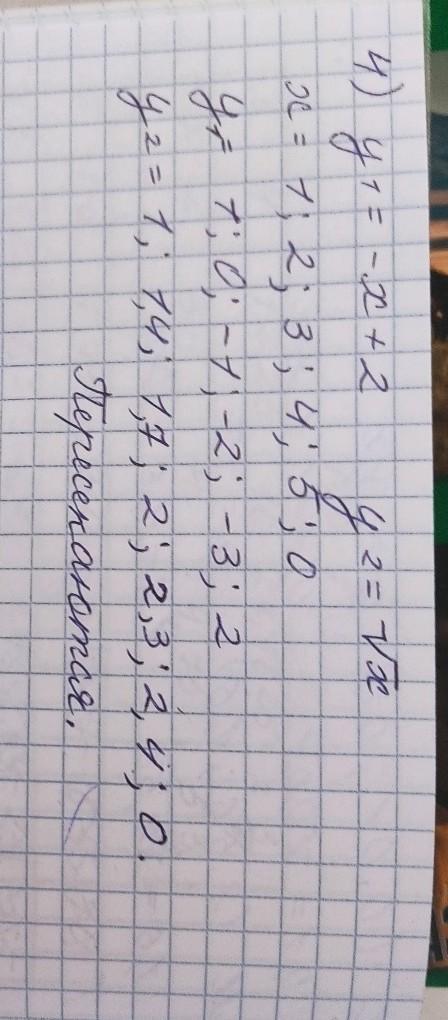 4) y₁ = -x + 2 y₂ = √x
x = 1; 2; 3; 4; 5; 0
y₁ = 1; 0; -1; -2; -3; 2
y₂ = 1; 1,4; 1,7; 2; 2,3; 2,4; 0.
Пересекаются.